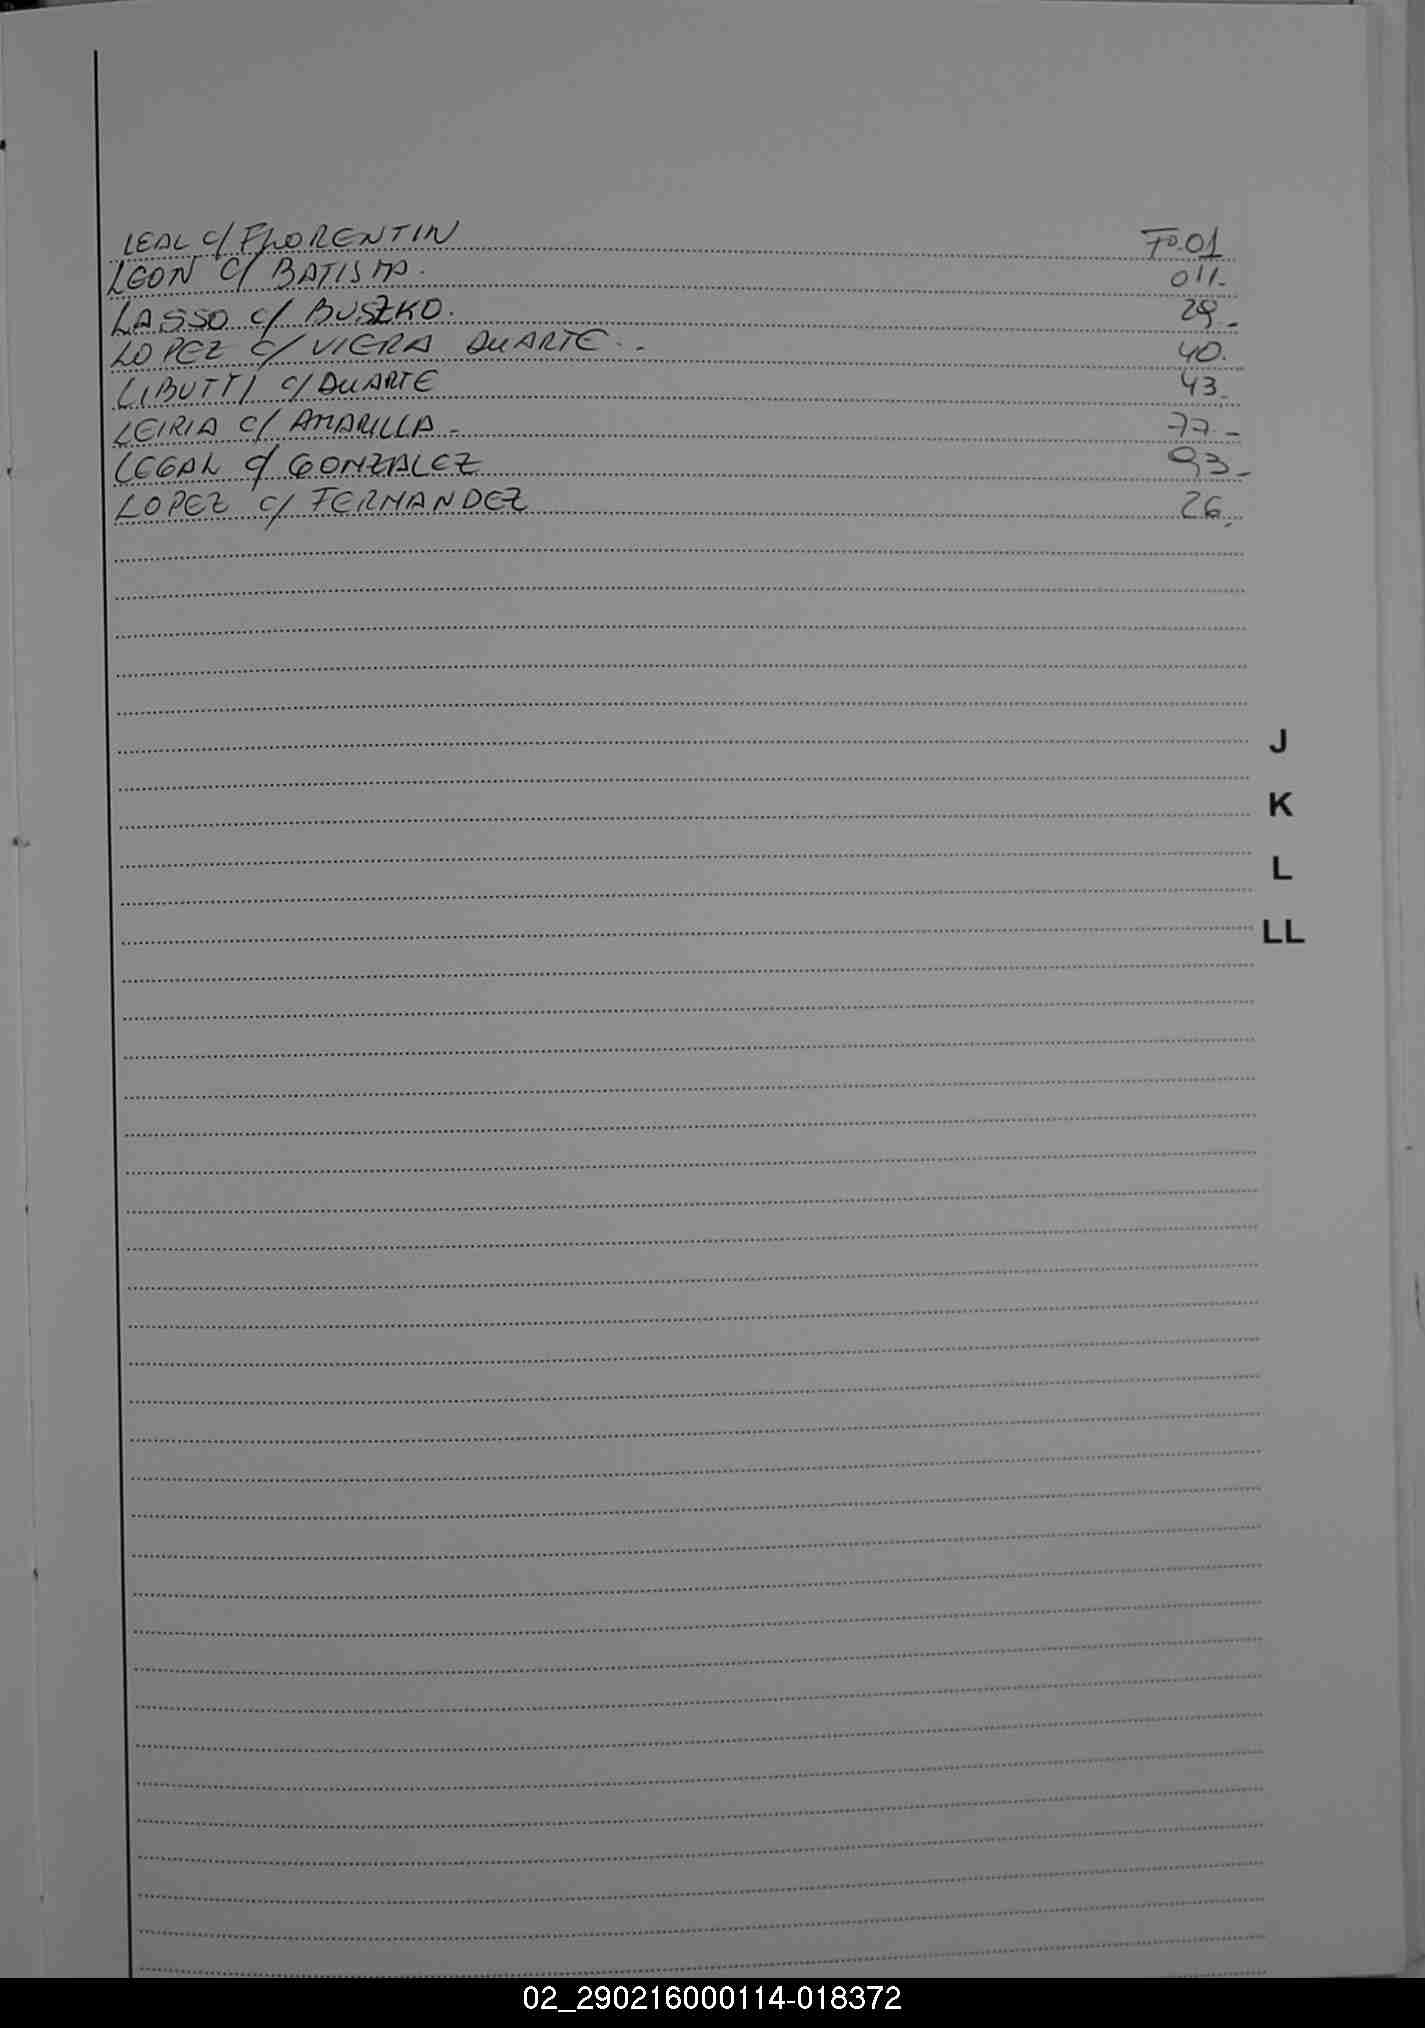 LEAL c/ FLORENTIN Fº.01
LEON c/ BATISTA. 011.-
LASSO c/ BUSZKO. 29.-
LOPEZ c/ VIERA DUARTE. .- 40.
LIBUTTI c/ DUARTE 43.
LEIRIA c/ AMARILLA.- 77.-
LEGAL c/ GONZALEZ 93.-
LOPEZ c/ FERNANDEZ 26.
J
K
L
LL
02_290216000114-018372